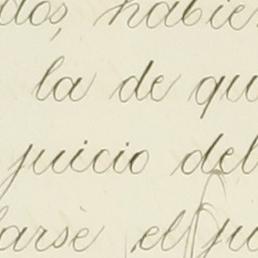 dos, habie
la de qu
juicio del
larse el ju